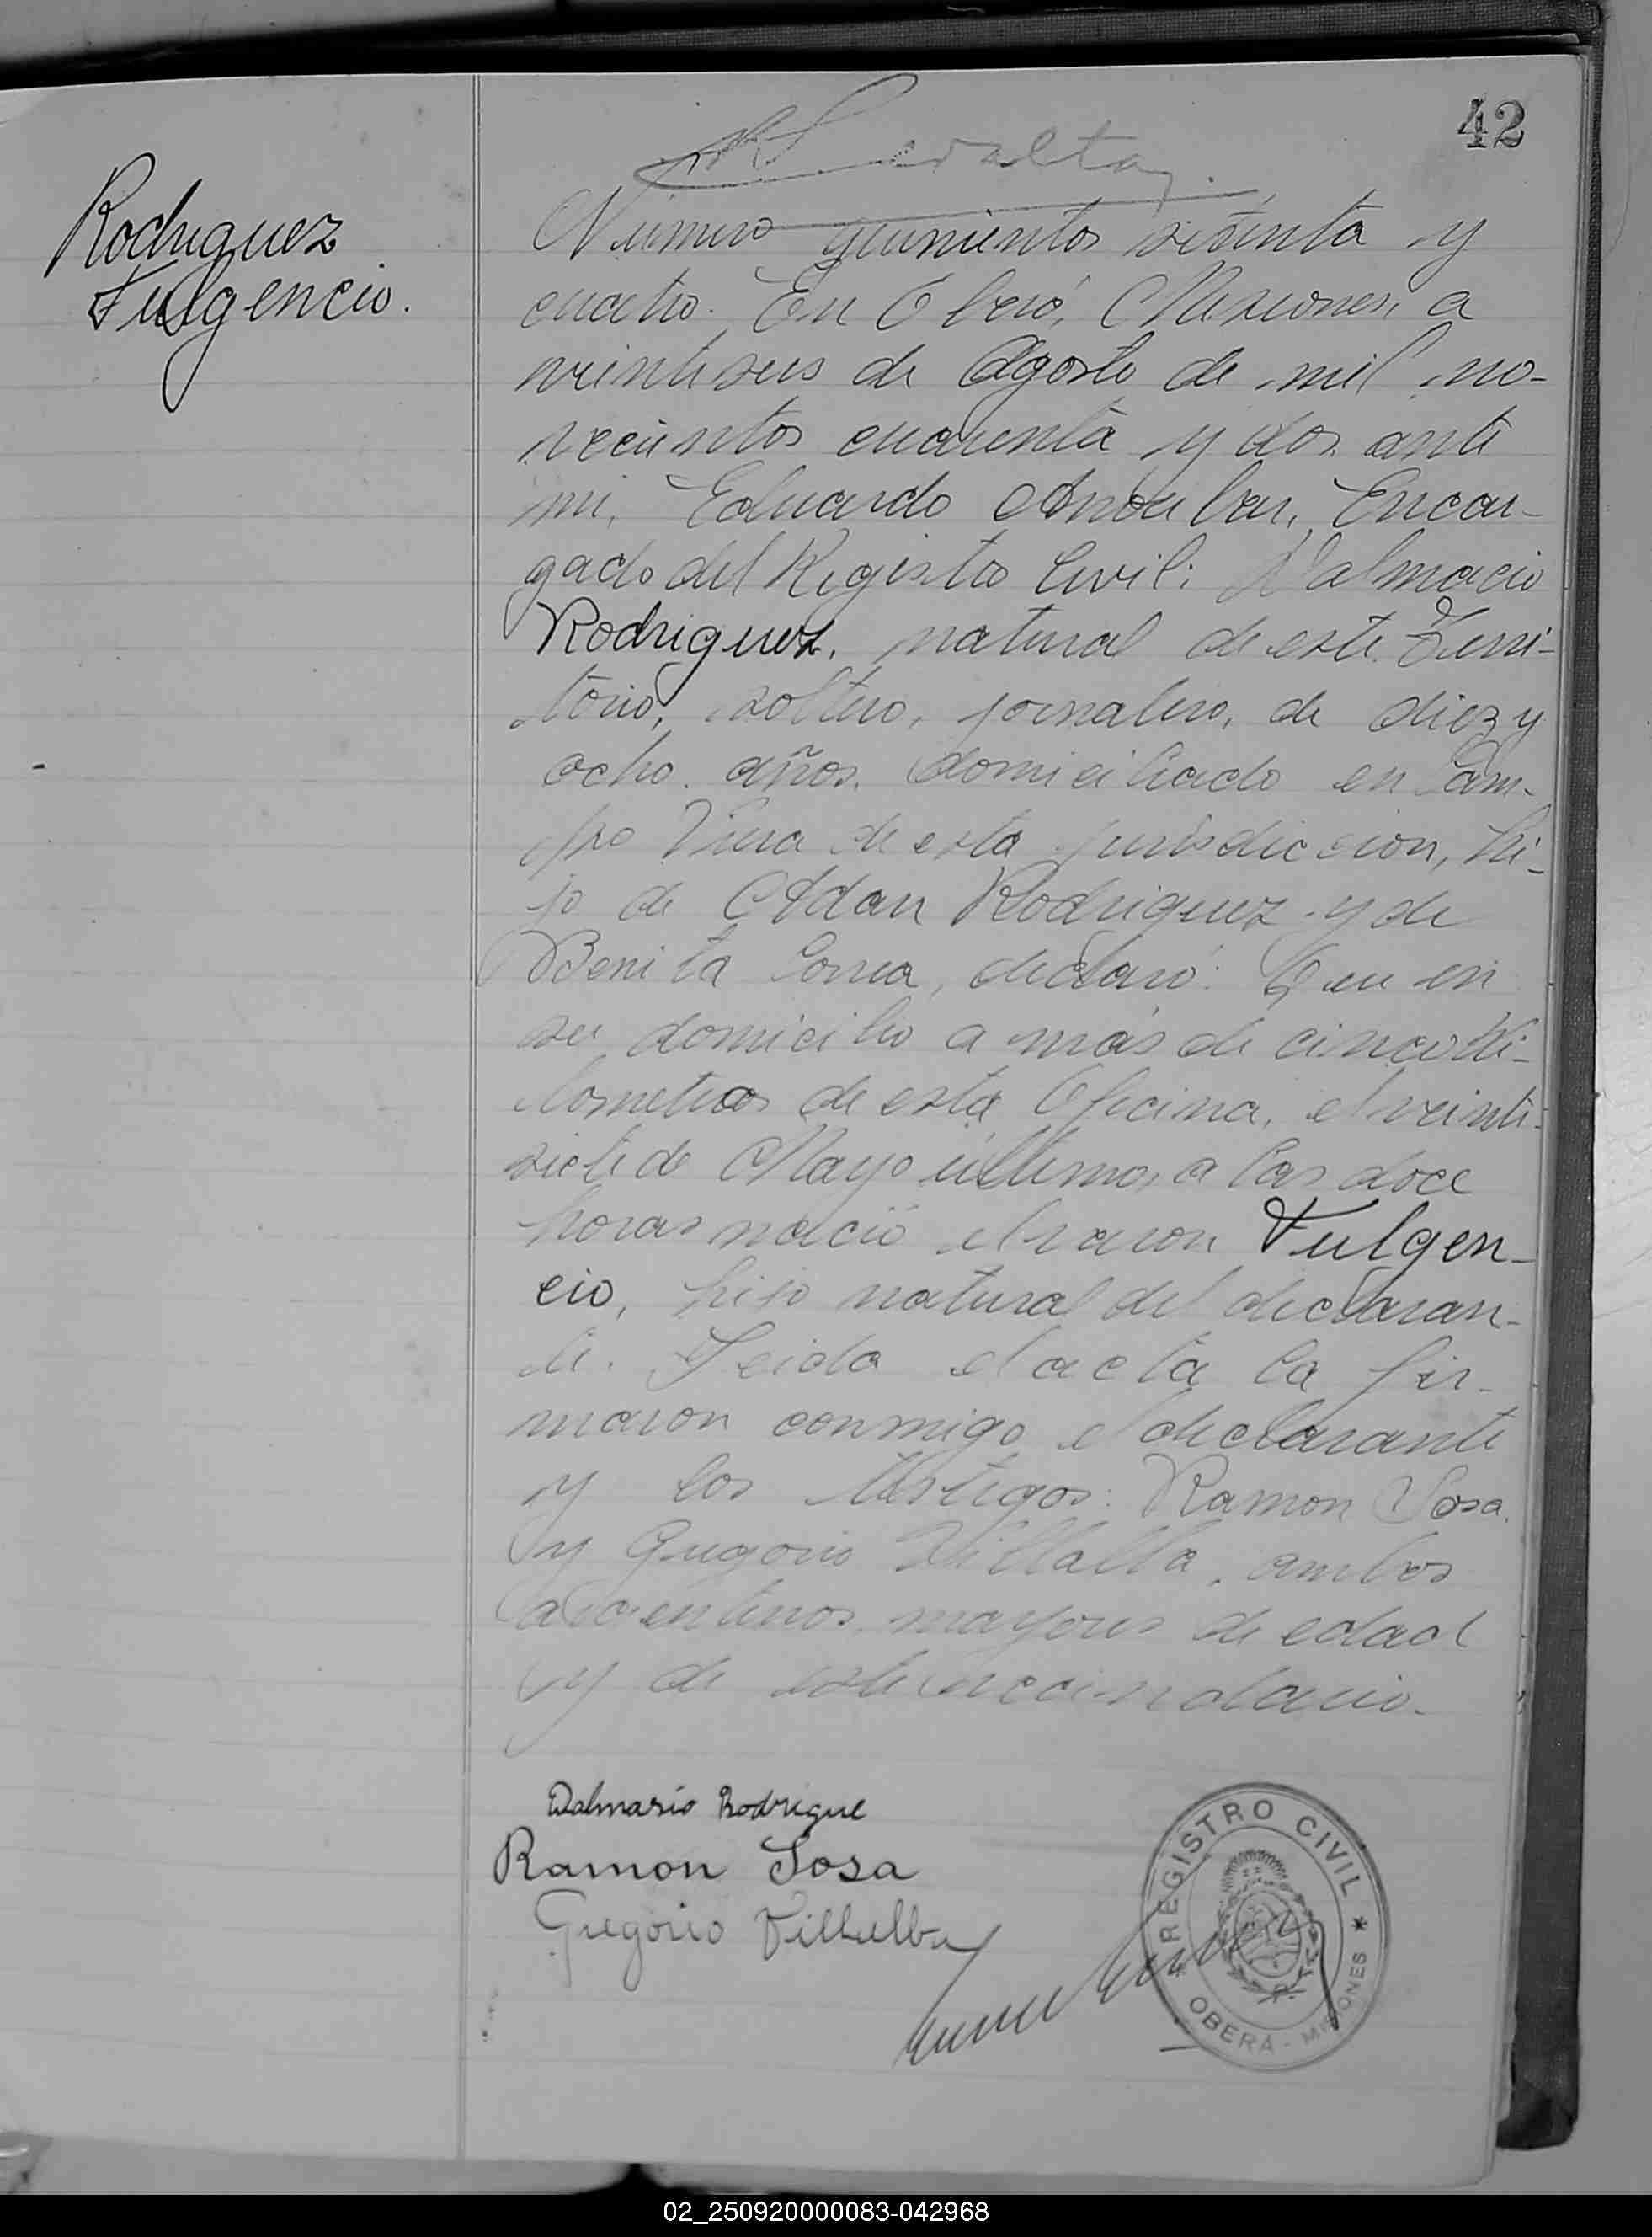 42
Rodriguez
Fulgencio.
Número quinientos setenta y
cuatro. En Oberá, Misiones, a
veintiseis de Agosto de mil no-
vecientos cuarenta y dos ante
mi, Eduardo Encar-
gado del Registro Civil: Dalmacio
Rodriguez, natural de este Terri-
torio, soltero, jornalero, de diez y
ocho años, domiciliado en Cam-
po Viera de esta jurisdiccion, hi-
jo de Adan Rodriguez y de
Benita Correa, declaró: Que en
su domicilio a más de cinco ki-
lometros de esta Oficina, el veinti-
siete de Mayo último, a las doce
horas nació el varon Fulgen-
cio, hijo natural del declaran-
te. Leida el acta la fir-
maron conmigo el declarante
y los testigos: Ramon Sosa
y Gregorio Villalba, ambos
argentinos, mayores de edad
y de este vecindario.
Dalmasio Rodrigue
Ramon Sosa
Gregorio Villalba
REGISTRO CIVIL
OBERÁ - MISIONES
02_250920000083-042968